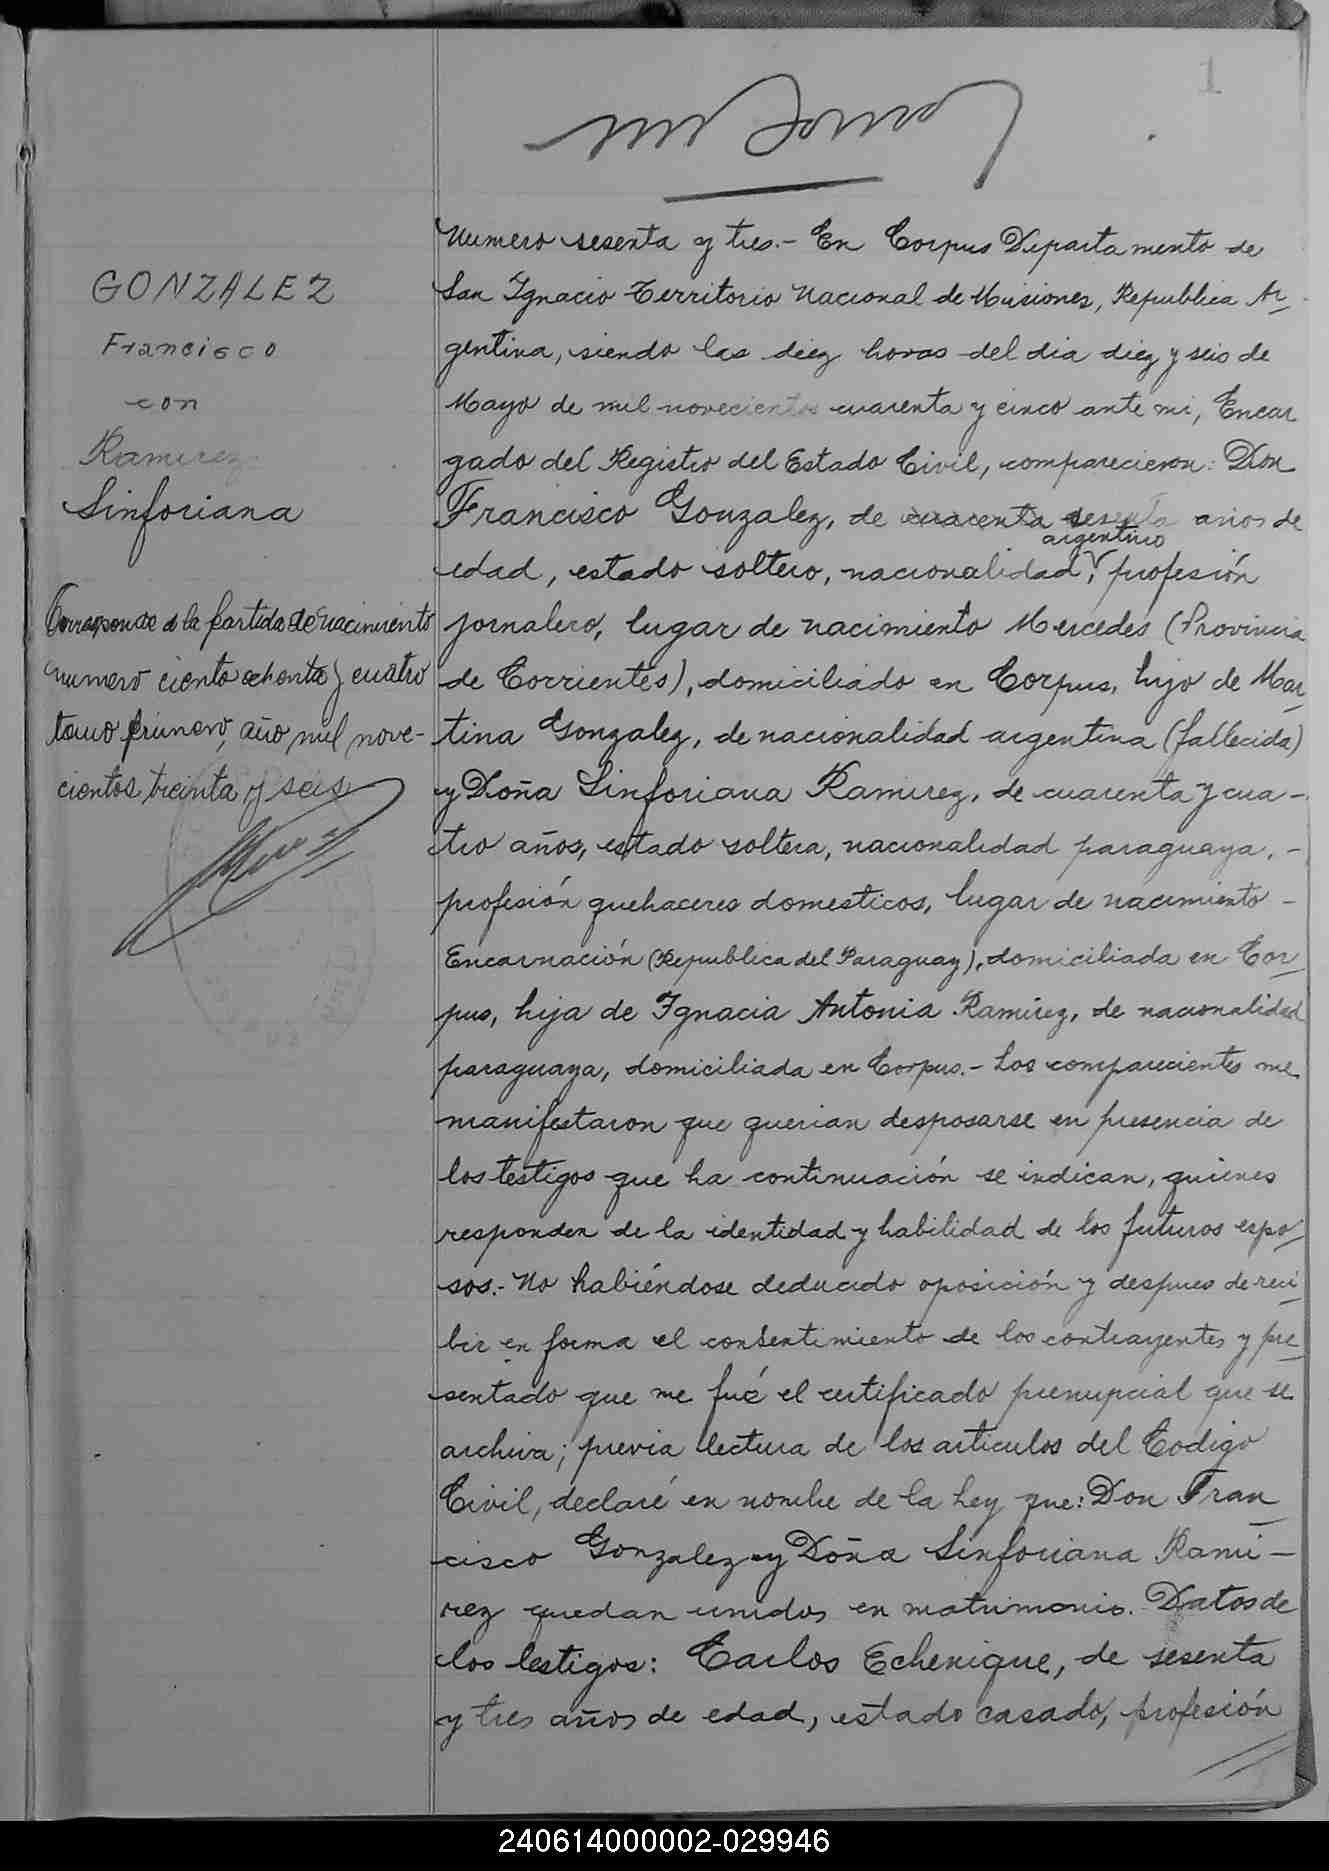 1
GONZALEZ
Francisco
con
Ramirez
Sinforiana
Corresponde a la partida de nacimiento
numero ciento ochenta y cuatro
tomo primero, año mil nove-
cientos treinta y seis
Numero sesenta y tres.- En Corpus Departamento de
San Ignacio Territorio Nacional de Misiones, Republica Ar-
gentina, siendo las diez horas del dia diez y seis de
Mayo de mil novecientos cuarenta y cinco ante mi, Encar
gado del Registro del Estado Civil, comparecieron: Don
Francisco Gonzalez, de cuarenta sesenta años de
argentino
edad, estado soltero, nacionalidad, profesión
jornalero, lugar de nacimiento Mercedes (Provincia
de Corrientes), domiciliado en Corpus, hijo de Mar-
tina Gonzalez, de nacionalidad argentina (fallecida)
y Doña Sinforiana Ramirez, de cuarenta y cua-
tro años, estado soltera, nacionalidad paraguaya, -
profesión quehaceres domesticos, lugar de nacimiento -
Encarnación (Republica del Paraguay), domiciliada en Cor-
pus, hija de Ignacia Antonia Ramirez, de nacionalidad
paraguaya, domiciliada en Corpus.- Los comparecientes me
manifestaron que querian desposarse en presencia de
los testigos que ha continuación se indican, quienes
responden de la identidad y habilidad de los futuros espo-
sos.- No habiéndose deducido oposición y despues de reci-
bir en forma el consentimiento de los contrayentes y pre-
sentado que me fué el certificado prenupcial que se
archiva; previa lectura de los articulos del Codigo
Civil, declaré en nombre de la Ley que: Don Fran-
cisco Gonzalez y Doña Sinforiana Rami-
rez quedan unidos en matrimonio. Datos de
los testigos: Carlos Echenique, de sesenta
y tres años de edad, estado casado, profesión
240614000002-029946